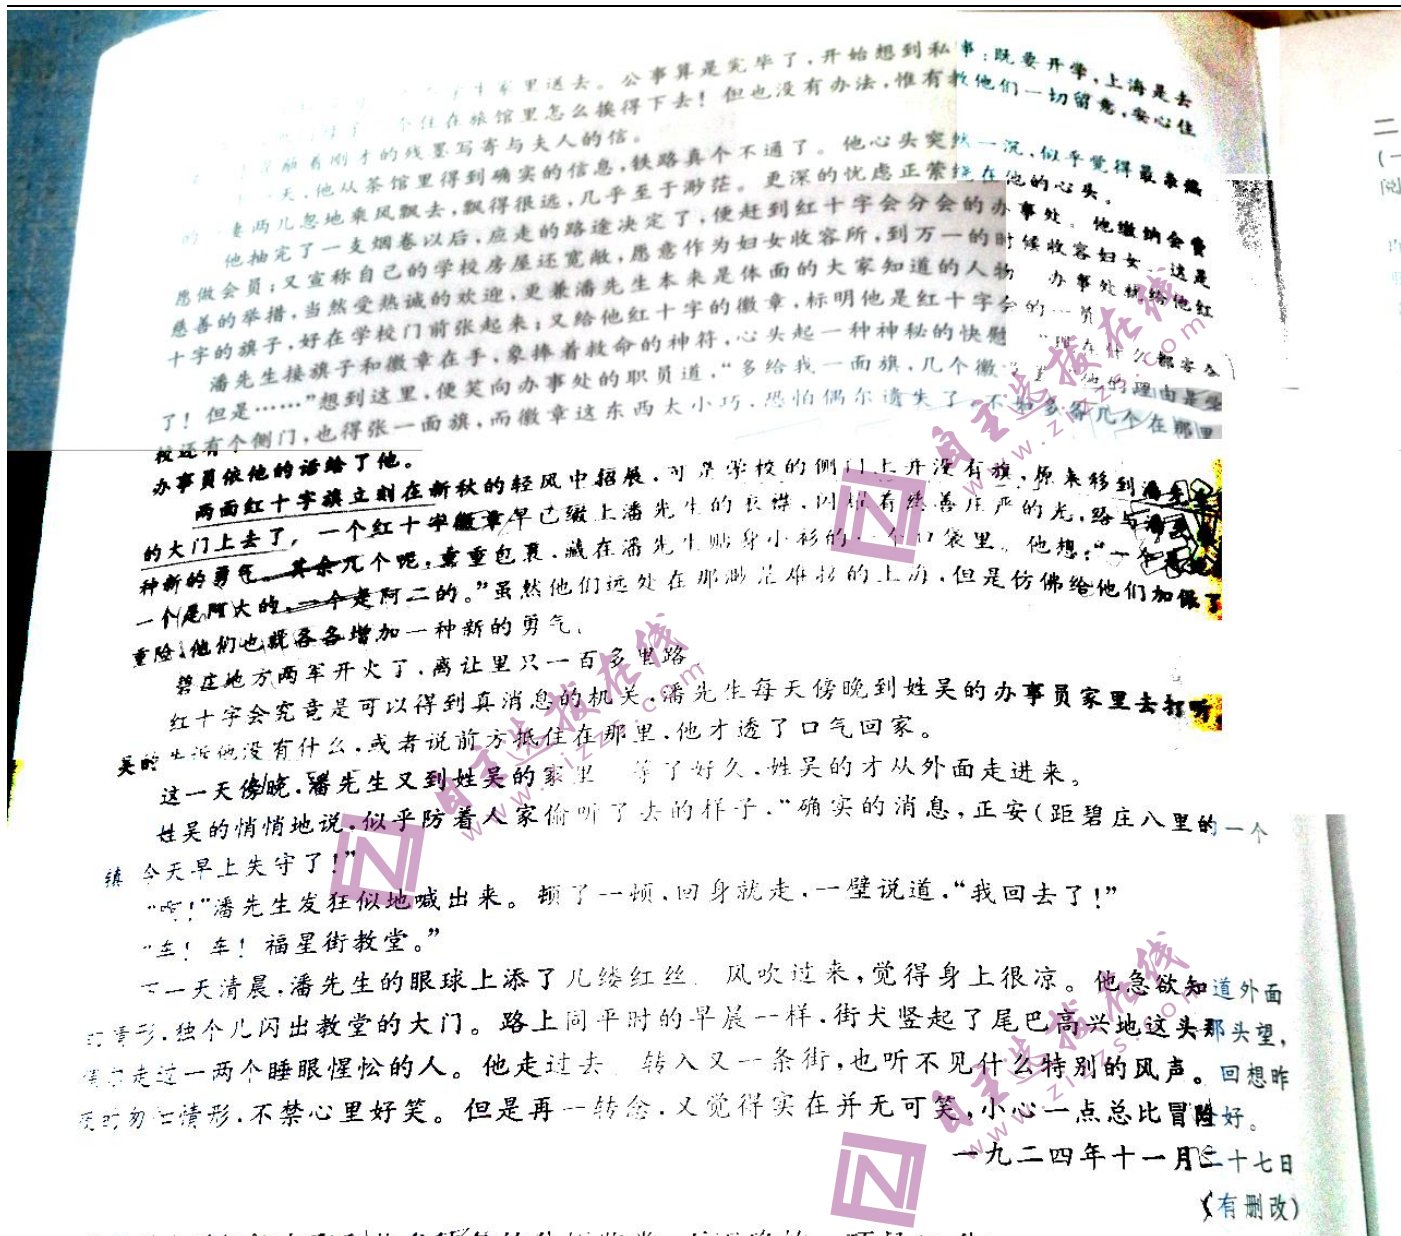 生家里送去。公事算是完毕了，开始想到私事：既要开学，上海是去
个住在旅馆里怎么挨得下去！但也没有办法，惟有教他们一切留意，安心住
着刚才的残墨写寄与夫人的信。
一天，他从茶馆里得到确实的信息，铁路真个不通了。他心头突然一沉，似乎觉得最亲热
的一妻两儿忽地乘风飘去，飘得很远，几乎至于渺茫。更深的忧虑正萦绕在他的心头。
他抽完了一支烟卷以后，应走的路途决定了，便赶到红十字会分会的办事处。他缴纳会费
愿做会员；又宣称自己的学校房屋还宽敞，愿意作为妇女收容所，到万一的时候收容妇女。这是
慈善的举措，当然受热诚的欢迎，更兼潘先生本来是体面的大家知道的人物 办事处就给他红
十字的旗子，好在学校门前张起来；又给他红十字的徽章，标明他是红十字会的一员
潘先生接旗子和徽章在手，象捧着救命的神符，心头起一种神秘的快慰 “现在什么都安全
了！但是……”想到这里，便笑向办事处的职员道，“多给我一面旗，几个徽 他的理由是学
校还有个侧门，也得张一面旗，而徽章这东西太小巧，恐怕偶尔遗失了，不如多备几个在那里
办事员依他的话给了他。
两面红十字旗立刻在新秋的轻风中招展，可是学校的侧门上并没有旗，原来移到潘先生
的大门上去了，一个红十字徽章早已缀上潘先生的衣襟，闪耀着慈善庄严的光，给与潘
种新的勇气。其余几个呢，重重包裹，藏在潘先生贴身小衫的一个口袋里。他想：“一个是
一个是阿大的，一个是阿二的。”虽然他们远处在那渺茫难接的上海，但是仿佛给他们加保了
重险，他们也就各各增加一种新的勇气。
碧庄地方两军开火了，离让里只一百多里路
红十字会究竟是可以得到真消息的机关，潘先生每天傍晚到姓吴的办事员家里去打听
吴的告诉他没有什么，或者说前方抵住在那里，他才透了口气回家。
这一天傍晚，潘先生又到姓吴的家里 等了好久，姓吴的才从外面走进来。
姓吴的悄悄地说，似乎防着人家偷听了去的样子，“确实的消息，正安（距碧庄八里的一个
镇 今天早上失守了！”
“啊！”潘先生发狂似地喊出来。顿了一顿，回身就走，一壁说道，“我回去了！”
“车！车！福星街教堂。”
下一天清晨，潘先生的眼球上添了几缕红丝 风吹过来，觉得身上很凉。他急欲知道外面
的情形，独个儿闪出教堂的大门。路上同平时的早晨一样，街犬竖起了尾巴高兴地这头那头望，
偶尔走过一两个睡眼惺忪的人。他走过去 转入又一条街，也听不见什么特别的风声。回想昨
匆忙情形，不禁心里好笑。但是再一转念，又觉得实在并无可笑，小心一点总比冒险好。
一九二四年十一月二十七日
（有删改）
二
（一
阅
自主选拔在线
www.zizzs.com
自主选拔在线
www.zizzs.com
自主选拔在线
www.zizzs.com